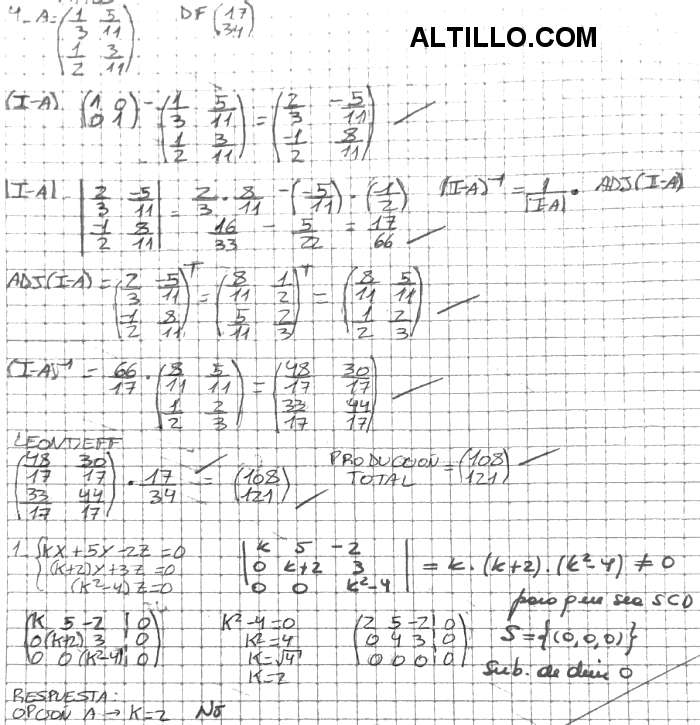 4_ A = (1/3 5/11 / 1/2 3/11) DF (17 / 34)
ALTILLO.COM
(I-A) (1 0 / 0 1) - (1/3 5/11 / 1/2 3/11) = (2/3 -5/11 / -1/2 8/11)
|I-A| |2/3 -5/11 / -1/2 8/11| = 2/3 . 8/11 - (-5/11) . (-1/2) (I-A)^-1 = 1/|I-A| . ADJ(I-A)
16/33 - 5/22 = 17/66
ADJ(I-A) = (2/3 -5/11 / -1/2 8/11)^T = (8/11 1/2 / 5/11 2/3)^T = (8/11 5/11 / 1/2 2/3)
(I-A)^-1 = 66/17 . (8/11 5/11 / 1/2 2/3) = (48/17 30/17 / 33/17 44/17)
LEONTIEFF
(48/17 30/17 / 33/17 44/17) . 17/34 = (108 / 121) PRODUCCION TOTAL = (108 / 121)
1_ { kx + 5y - 2z = 0
(k+2)y + 3z = 0
(k²-4)z = 0
|k 5 -2 / 0 k+2 3 / 0 0 k²-4| = k . (k+2) . (k²-4) ≠ 0
para que sea SCD
(k 5 -2 | 0 / 0 (k+2) 3 | 0 / 0 0 (k²-4) | 0)
k²-4=0
k²=4
k=√4
k=2
(2 5 -2 | 0 / 0 4 3 | 0 / 0 0 0 | 0)
S = {(0,0,0)}
sub. de dim 0
RESPUESTA:
OPCIÓN A → K=2 No